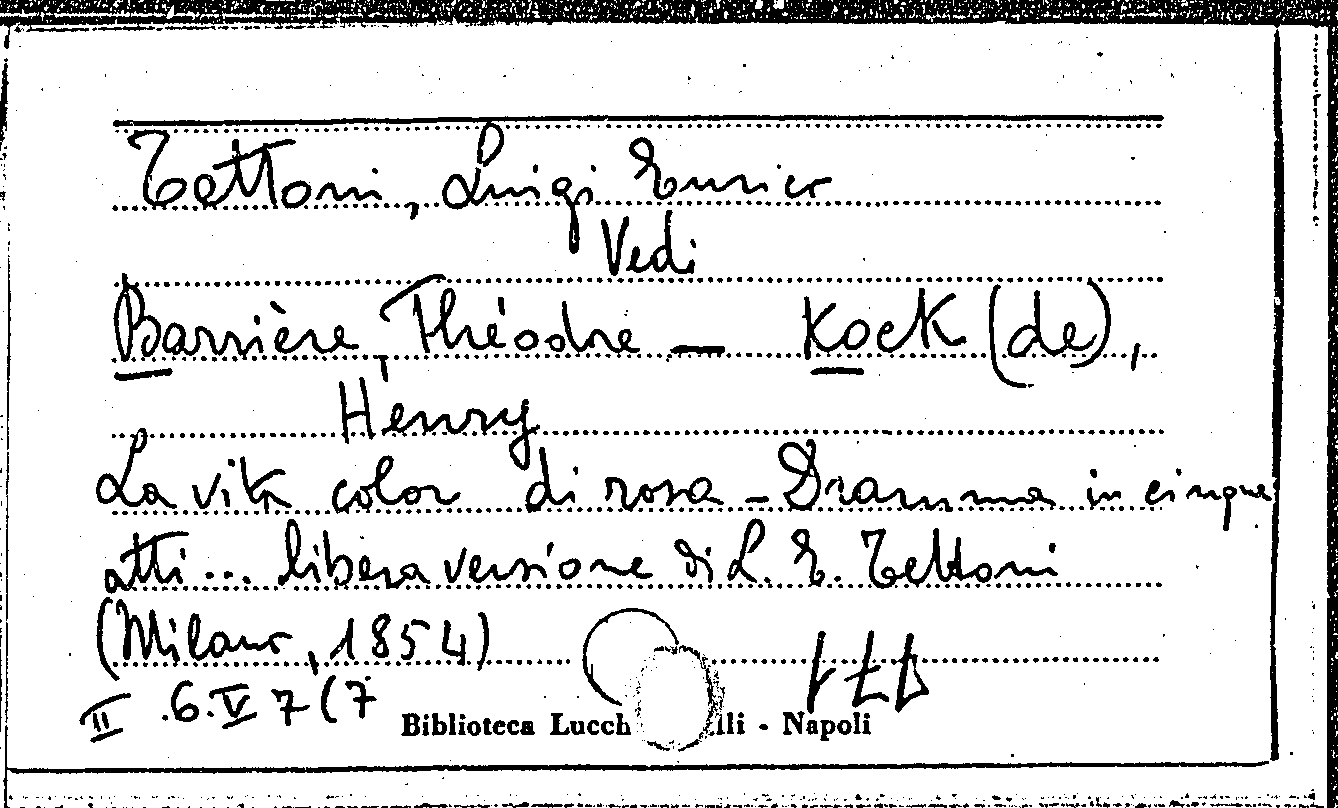 Tettoni, Luigi Enrico
Vedi
Barrière, Théodore — Kock (de),
Henry
La vita color di rosa - Dramma in cinque
atti... libera versione di L. E. Tettoni
(Milano, 1854)
II .6.V 7(7
Biblioteca Lucch lli - Napoli